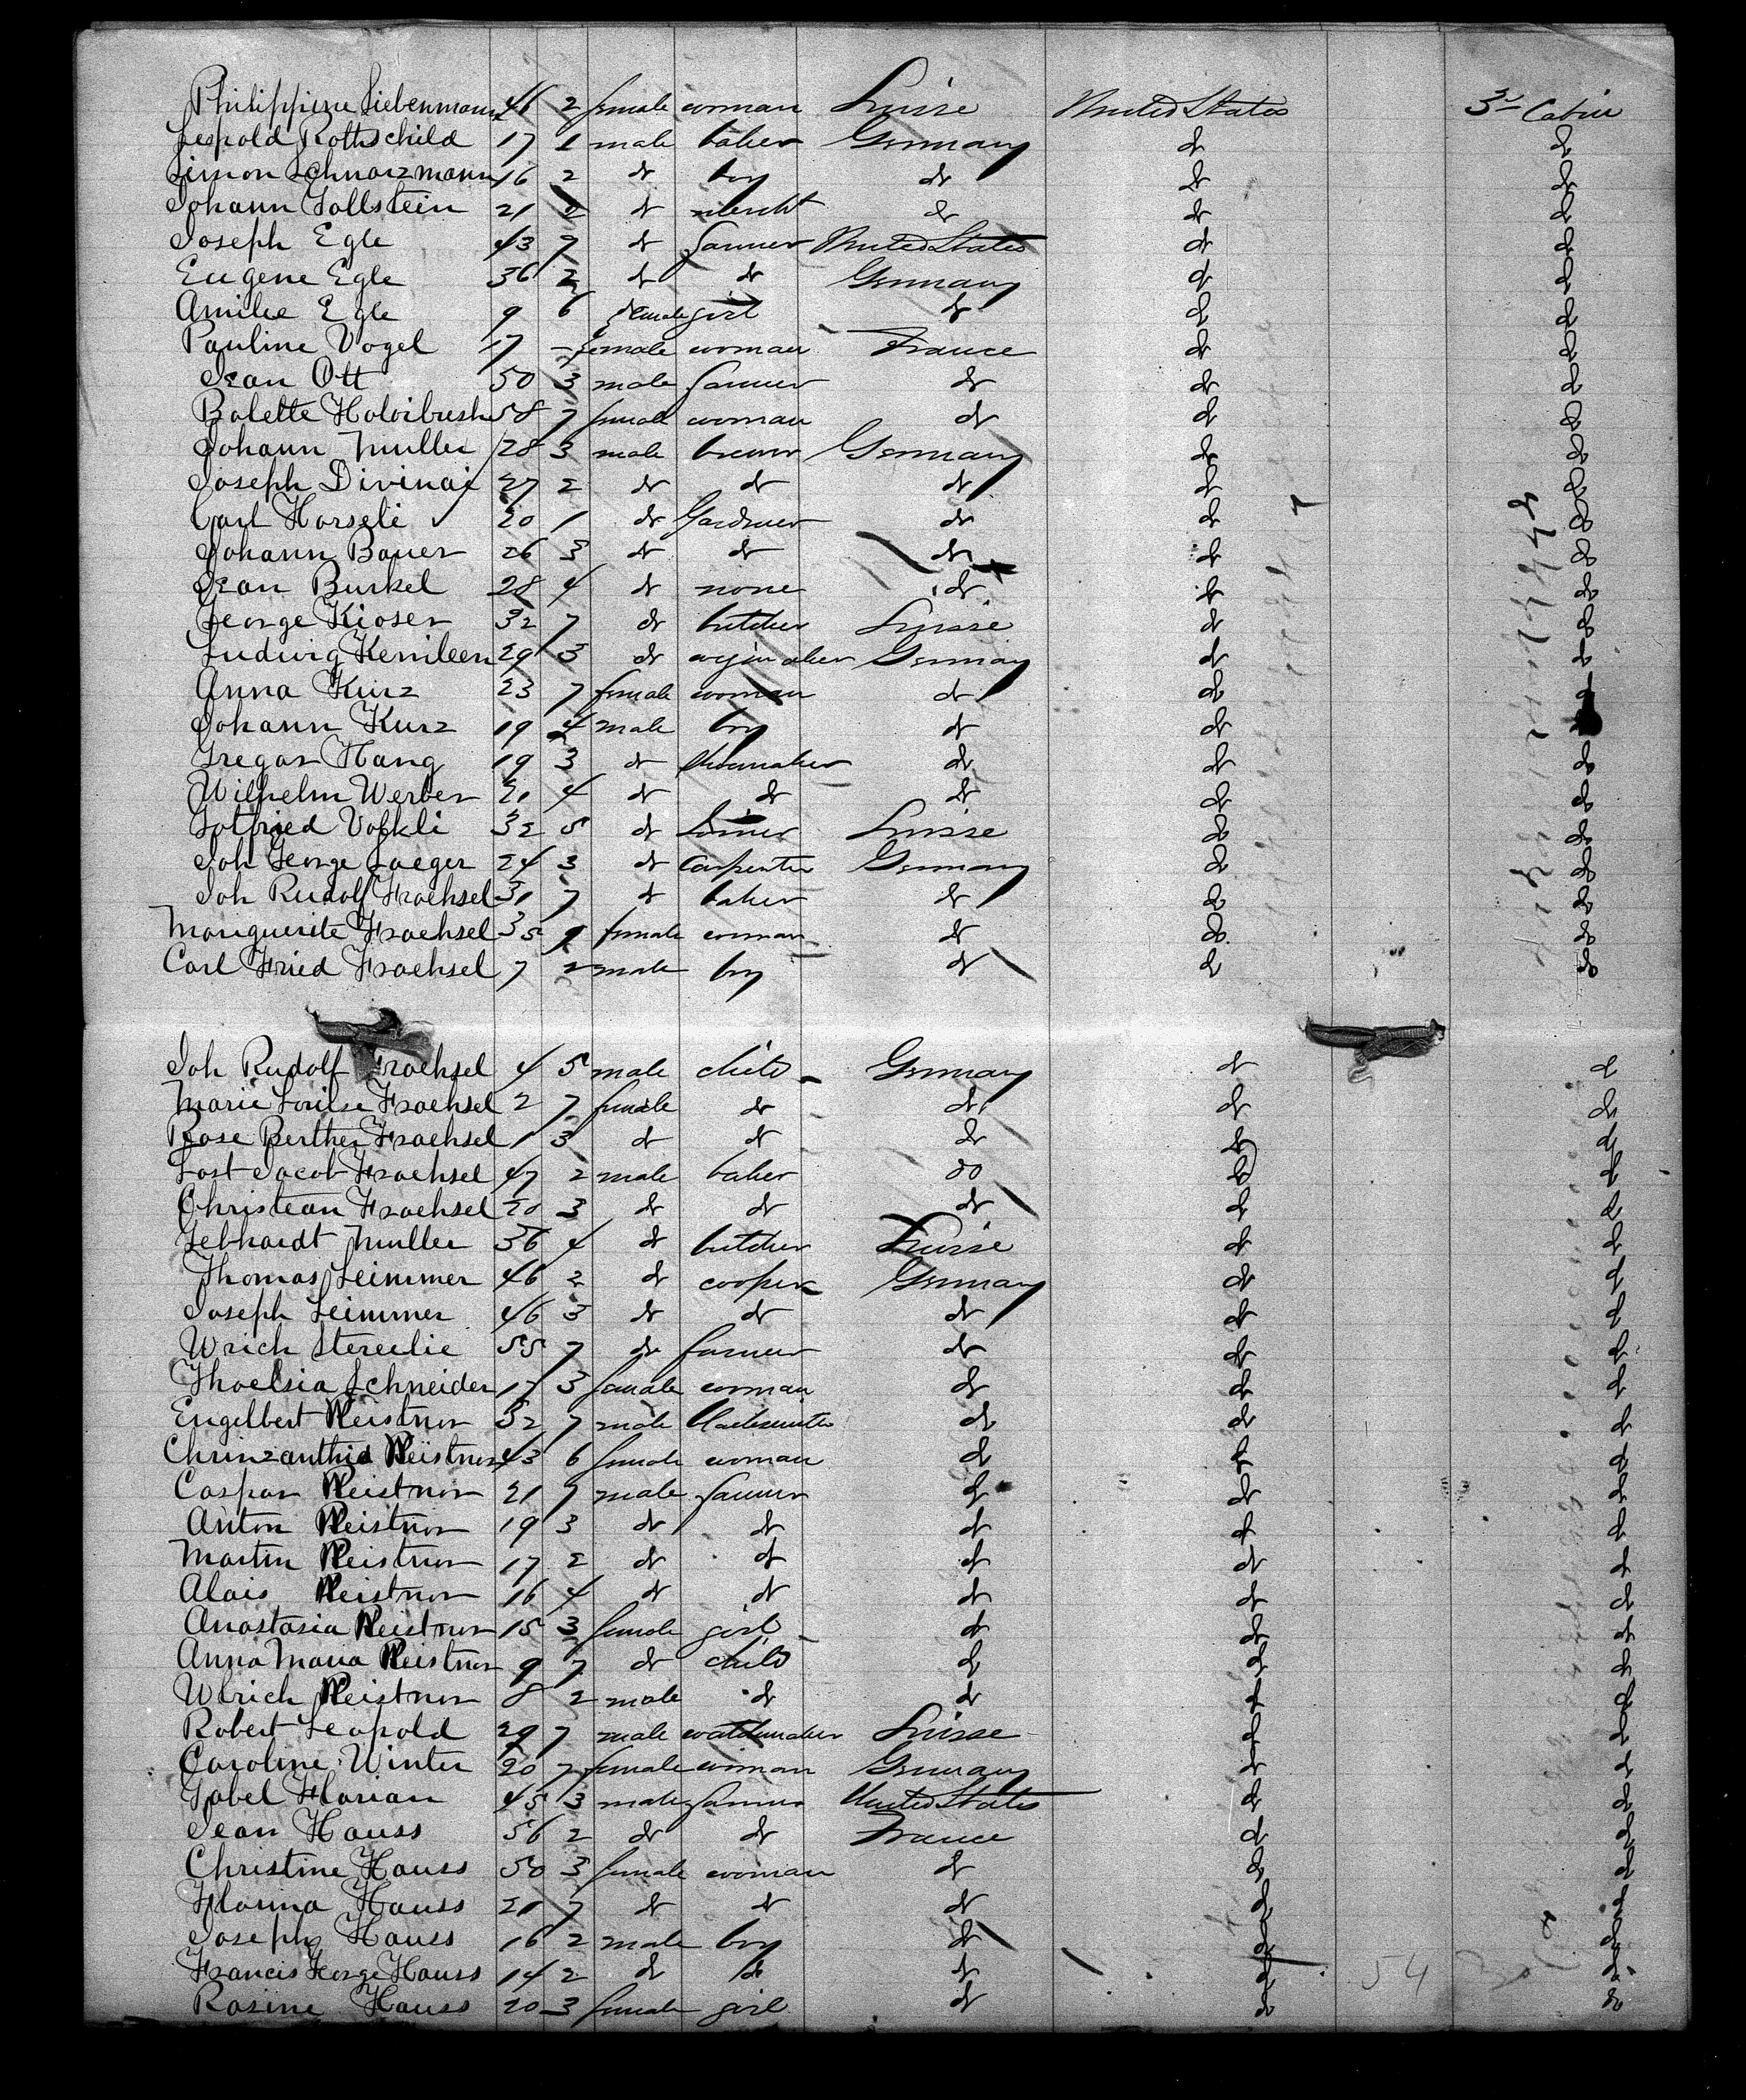 Philippine Liebenmann 46 2 female woman Suisse United States 3d Cabin
Leopold Rothschild 17 1 male baker Germany do do
Simon Schwarzmann 16 2 do boy do do do
Johann Follstein 21 2 do mercht do do do
Joseph Egle 43 7 do farmer United States do do
Eugene Egle 36 2 do do Germany do do
Amilie Egle 9 6 female girl do do do
Pauline Vogel 17 - female woman France do do
Jean Ott 50 3 male farmer do do do
Babette Holvibush 58 7 female woman do do do
Johann Muller 28 3 male brewer Germany do do
Joseph Divinai 27 2 do do do do do
Carl Horseli 20 1 do Gardner do do do
Johann Bauer 26 3 do do do do do
Jean Burkel 28 4 do none do do do
George Kioser 32 7 do butcher Suisse do do
Ludwig Kemileen 29 3 do Germany do do
Anna Kurz 23 7 female woman do do do
Johann Kurz 19 4 male boy do do
Gregor Hang 19 3 do shoemaker do do do
Wilhelm Werber 21 4 do do do do do
Gotfried Vofkli 32 5 do Suisse do do
Joh George Jaeger 24 3 do carpenter Germany do do
Joh Rudolf Fraehsel 31 7 do baker do do do
Marguerite Fraehsel 35 9 female woman do do do
Carl Fried Fraehsel 7 2 male boy do do do
Joh Rudolf Fraehsel 4 5 male child Germany do do
Marie Louise Fraehsel 2 7 female do do do do
Rose Berther Fraehsel 1 3 do do do do do
Jost Jacob Fraehsel 47 2 male baker do do do
Christean Fraehsel 20 3 do do do do do
Gebhardt Muller 36 4 do butcher Suisse do do
Thomas Leimmer 46 2 do cooper Germany do do
Joseph Leimmer 46 3 do do do do do
Wrich Stereilie 55 7 do farmer do do do
Thoelsia Schneider 17 3 female woman do do do
Engelbert Reistnor 52 7 male blacksmith do do do
Chrinzanthia Reistnor 43 6 female woman do do do
Caspar Reistnor 21 7 male farmer do do do
Anton Reistnor 19 3 do do do do do
Martin Reistnor 17 2 do do do do do
Alois Reistnor 16 4 do do do do do
Anastasia Reistnor 15 3 female girl do do do
Anna Maria Reistnor 9 7 do child do do do
Ulrich Reistnor 8 2 male do do do do
Robert Leopold 29 7 male watchmaker Suisse do do
Caroline Winter 20 7 female woman Germany do do
Gobel Florian 45 3 male farmer United States do do
Jean Hauss 56 2 do do France do do
Christine Hauss 50 3 female woman do do do
Florina Hauss 21 7 do do do do do
Joseph Hauss 16 2 male boy do do do
Francis George Hauss 14 2 do do do do 54 do
Rosine Hauss 20 3 female girl do do do